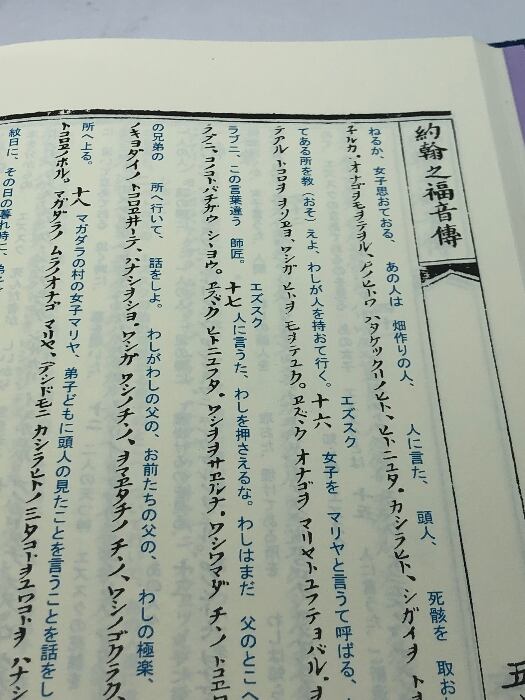 約翰之福音傳
ねるか、女子思おておる、あの人は 畑作りの人、 人に言た、 頭人、 死骸を 取お
子ルカ・オナゴヲモヲテヲル、アノヒトワ ハタケツクリノヒト、ヒトニユタ・カシラヒト、シガイヲ ト
てある所を教（おそ）えよ、わしが人を持おて行く。 十六 エズスク 女子を マリヤと言うて呼ばる、
テアル トコロヲ ヲソヱヨ、ワシガ ヒトヲ モヲテユク。ヱズク オナゴヲ マリヤトユフテヨバル・
ラブニ、この言葉違う 師匠。 十七 エズスク 人に言うた、わしを押さえるな。わしはまだ 父のとこへ
ラブニ、コノコトバチガウ シヽヨウ。ヱズク ヒトニユフタ・ワシヲヲサヱルナ・ワシワマダ チヽノ トコヱ
の兄弟の 所へ行いて、話をしよ。 わしがわしの父の、お前たちの父の、 わしの極楽、
ノキヨダイノ トコロヱ井ーテ、ハナシヲシヨ・ワシガ ワシノチヽノ、ヲマヱタチノ チヽノ、ワシノゴクラク
所へ上る。 十八 マガダラの村の女子マリヤ、弟子どもに頭人の見たことを言うことを話をし
トコロヱノボル。 マガダラノ ムラノオナゴ マリヤ、デシドモニ カシラヒトノ ミタコトヲユワコトヲ ハナシ
紋日に、その日の暮れ時ニ、弟子
五